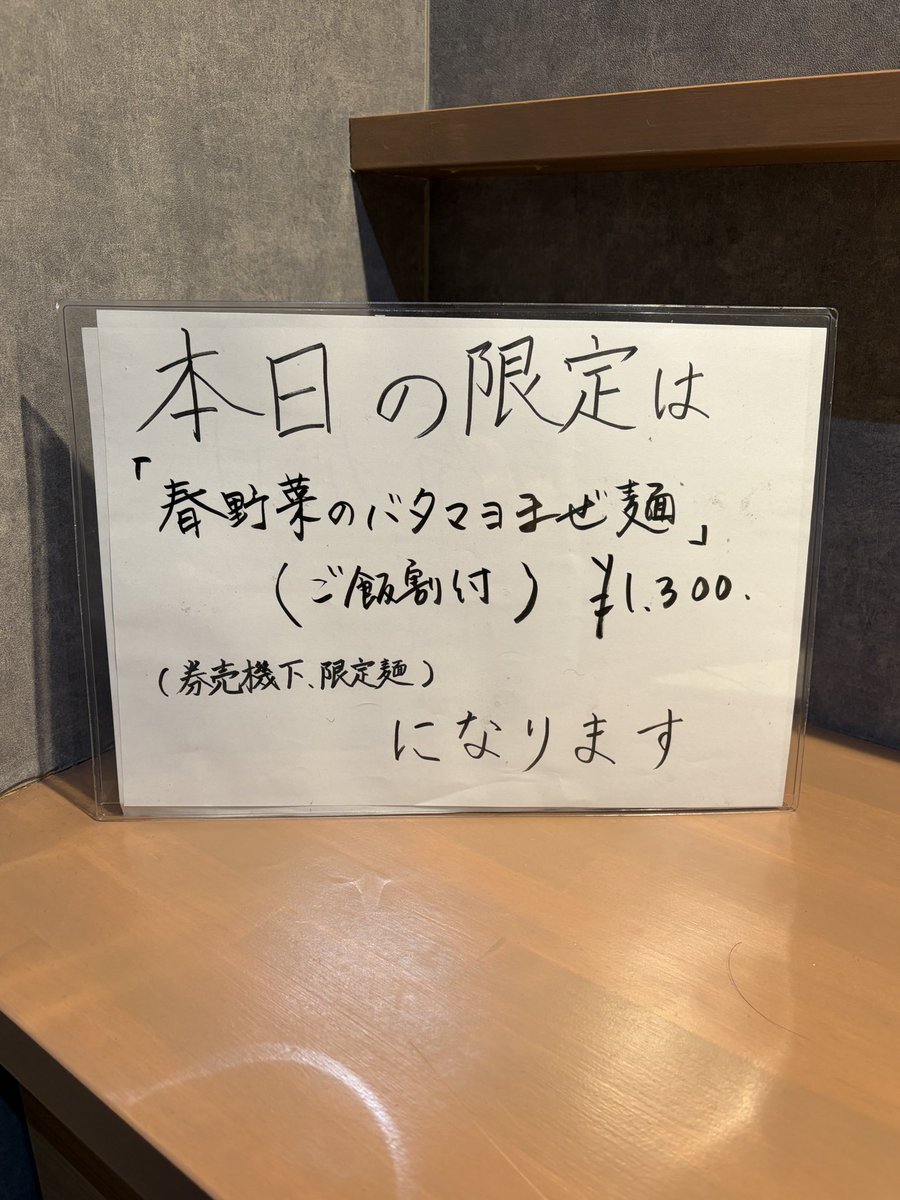 本日の限定は
「春野菜のバタマヨまぜ麺」
(ご飯割付) ¥1.300.
(券売機下、限定麺)
になります